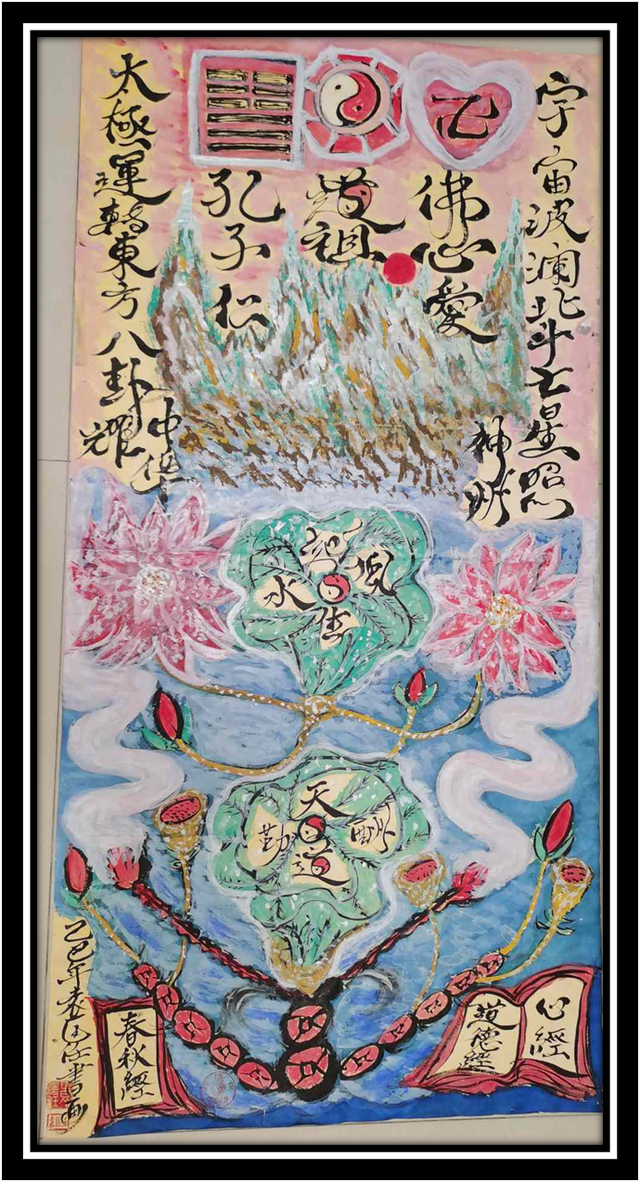 宇宙波澜北斗七星照
神州
佛心愛
道祖
孔子仁
太極運轉東方八卦耀
中华
風生水起
天道酬勤
心經
道德經
春秋經
乙巳年書画